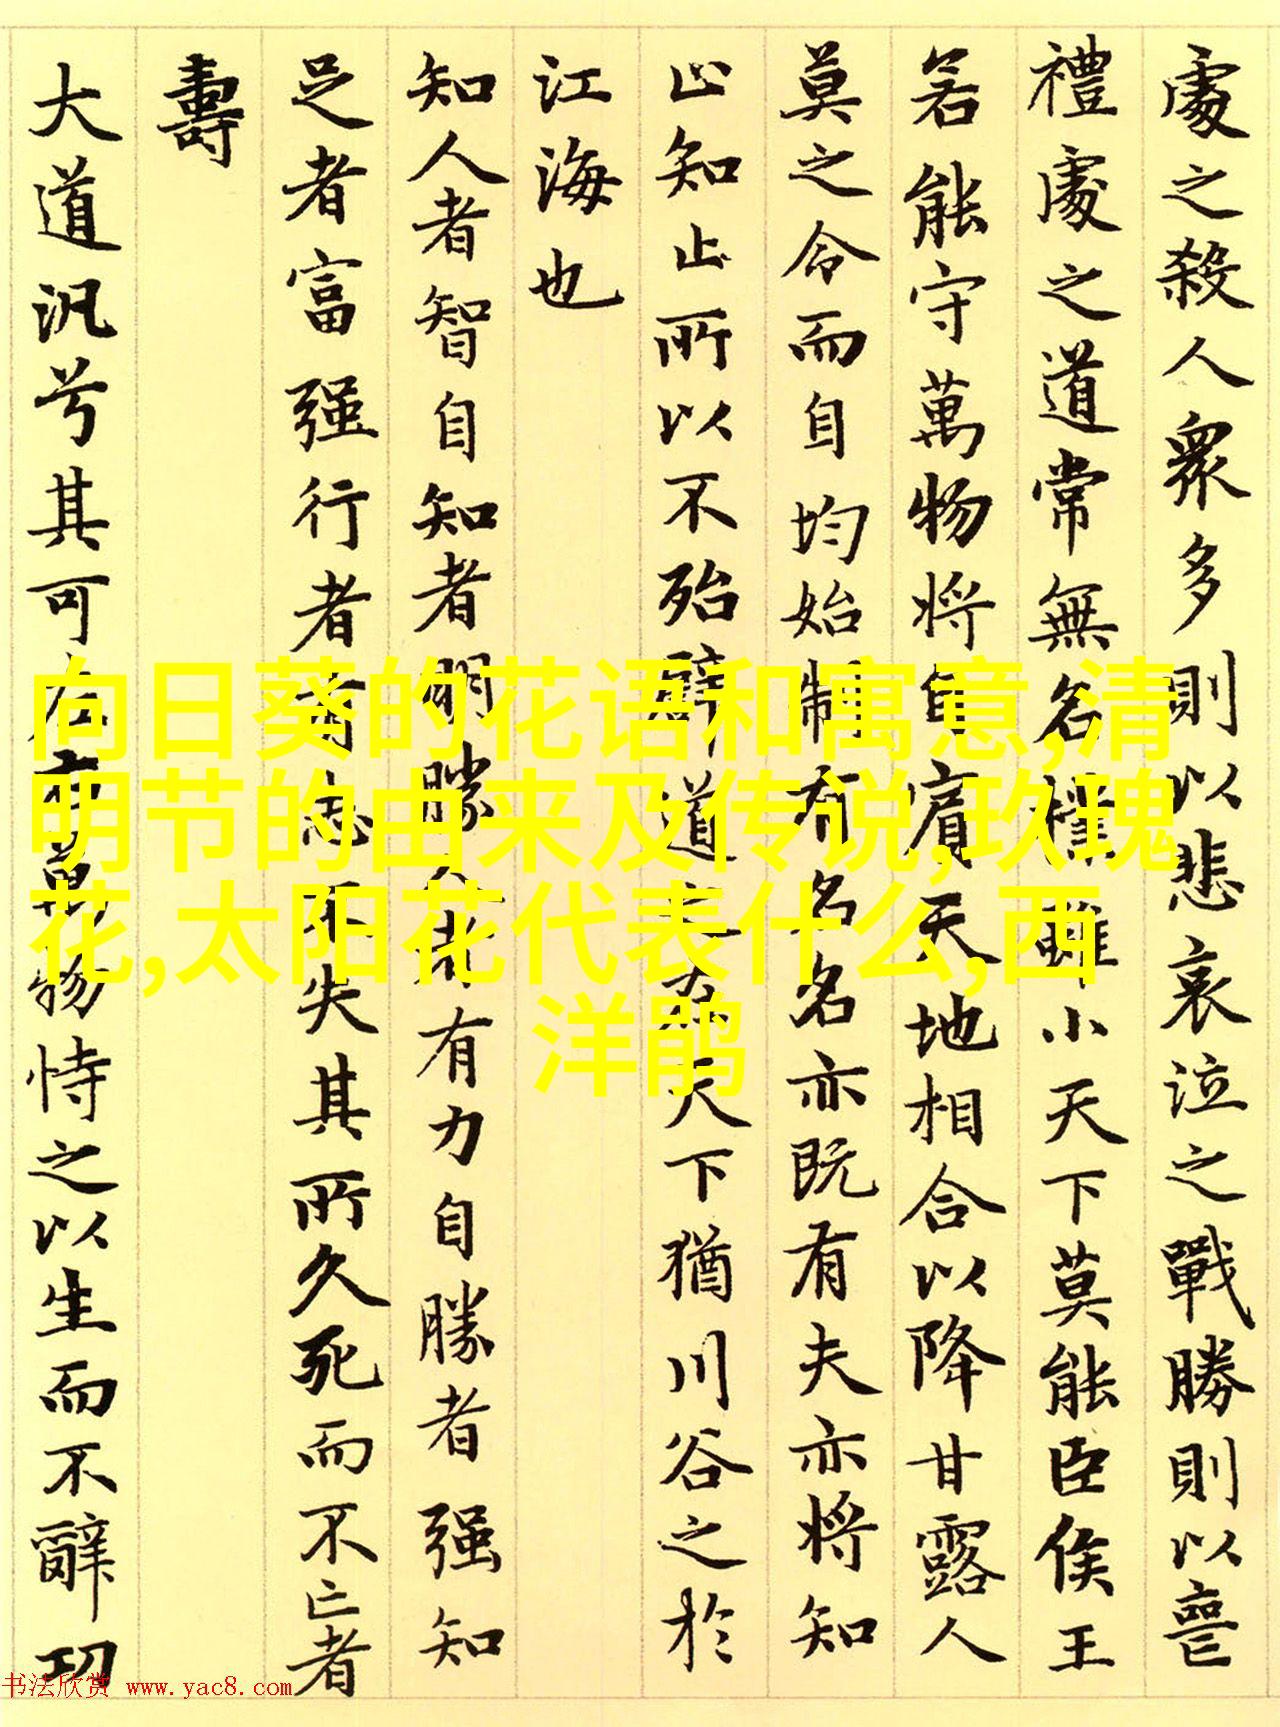 處之殺人衆多則以悲哀泣之戰勝則以喪
禮處之道常無名樸雖小天下莫能臣侯王
若能守萬物將自賓天地相合以降甘露人
莫之令而自均始制有名名亦既有夫亦將知
止知止所以不殆譬道之在天下猶川谷之於
江海也
知人者智自知者明勝人者有力自勝者强知
足者富强行者有志不失其所久死而不亡者
壽
大道汎兮其可左右萬物恃之以生而不辭功
向日葵的花语和寓意,清
明节的由来及传说,玫瑰
花,太阳花代表什么,西
洋鹃
书法欣赏 www.yac8.com